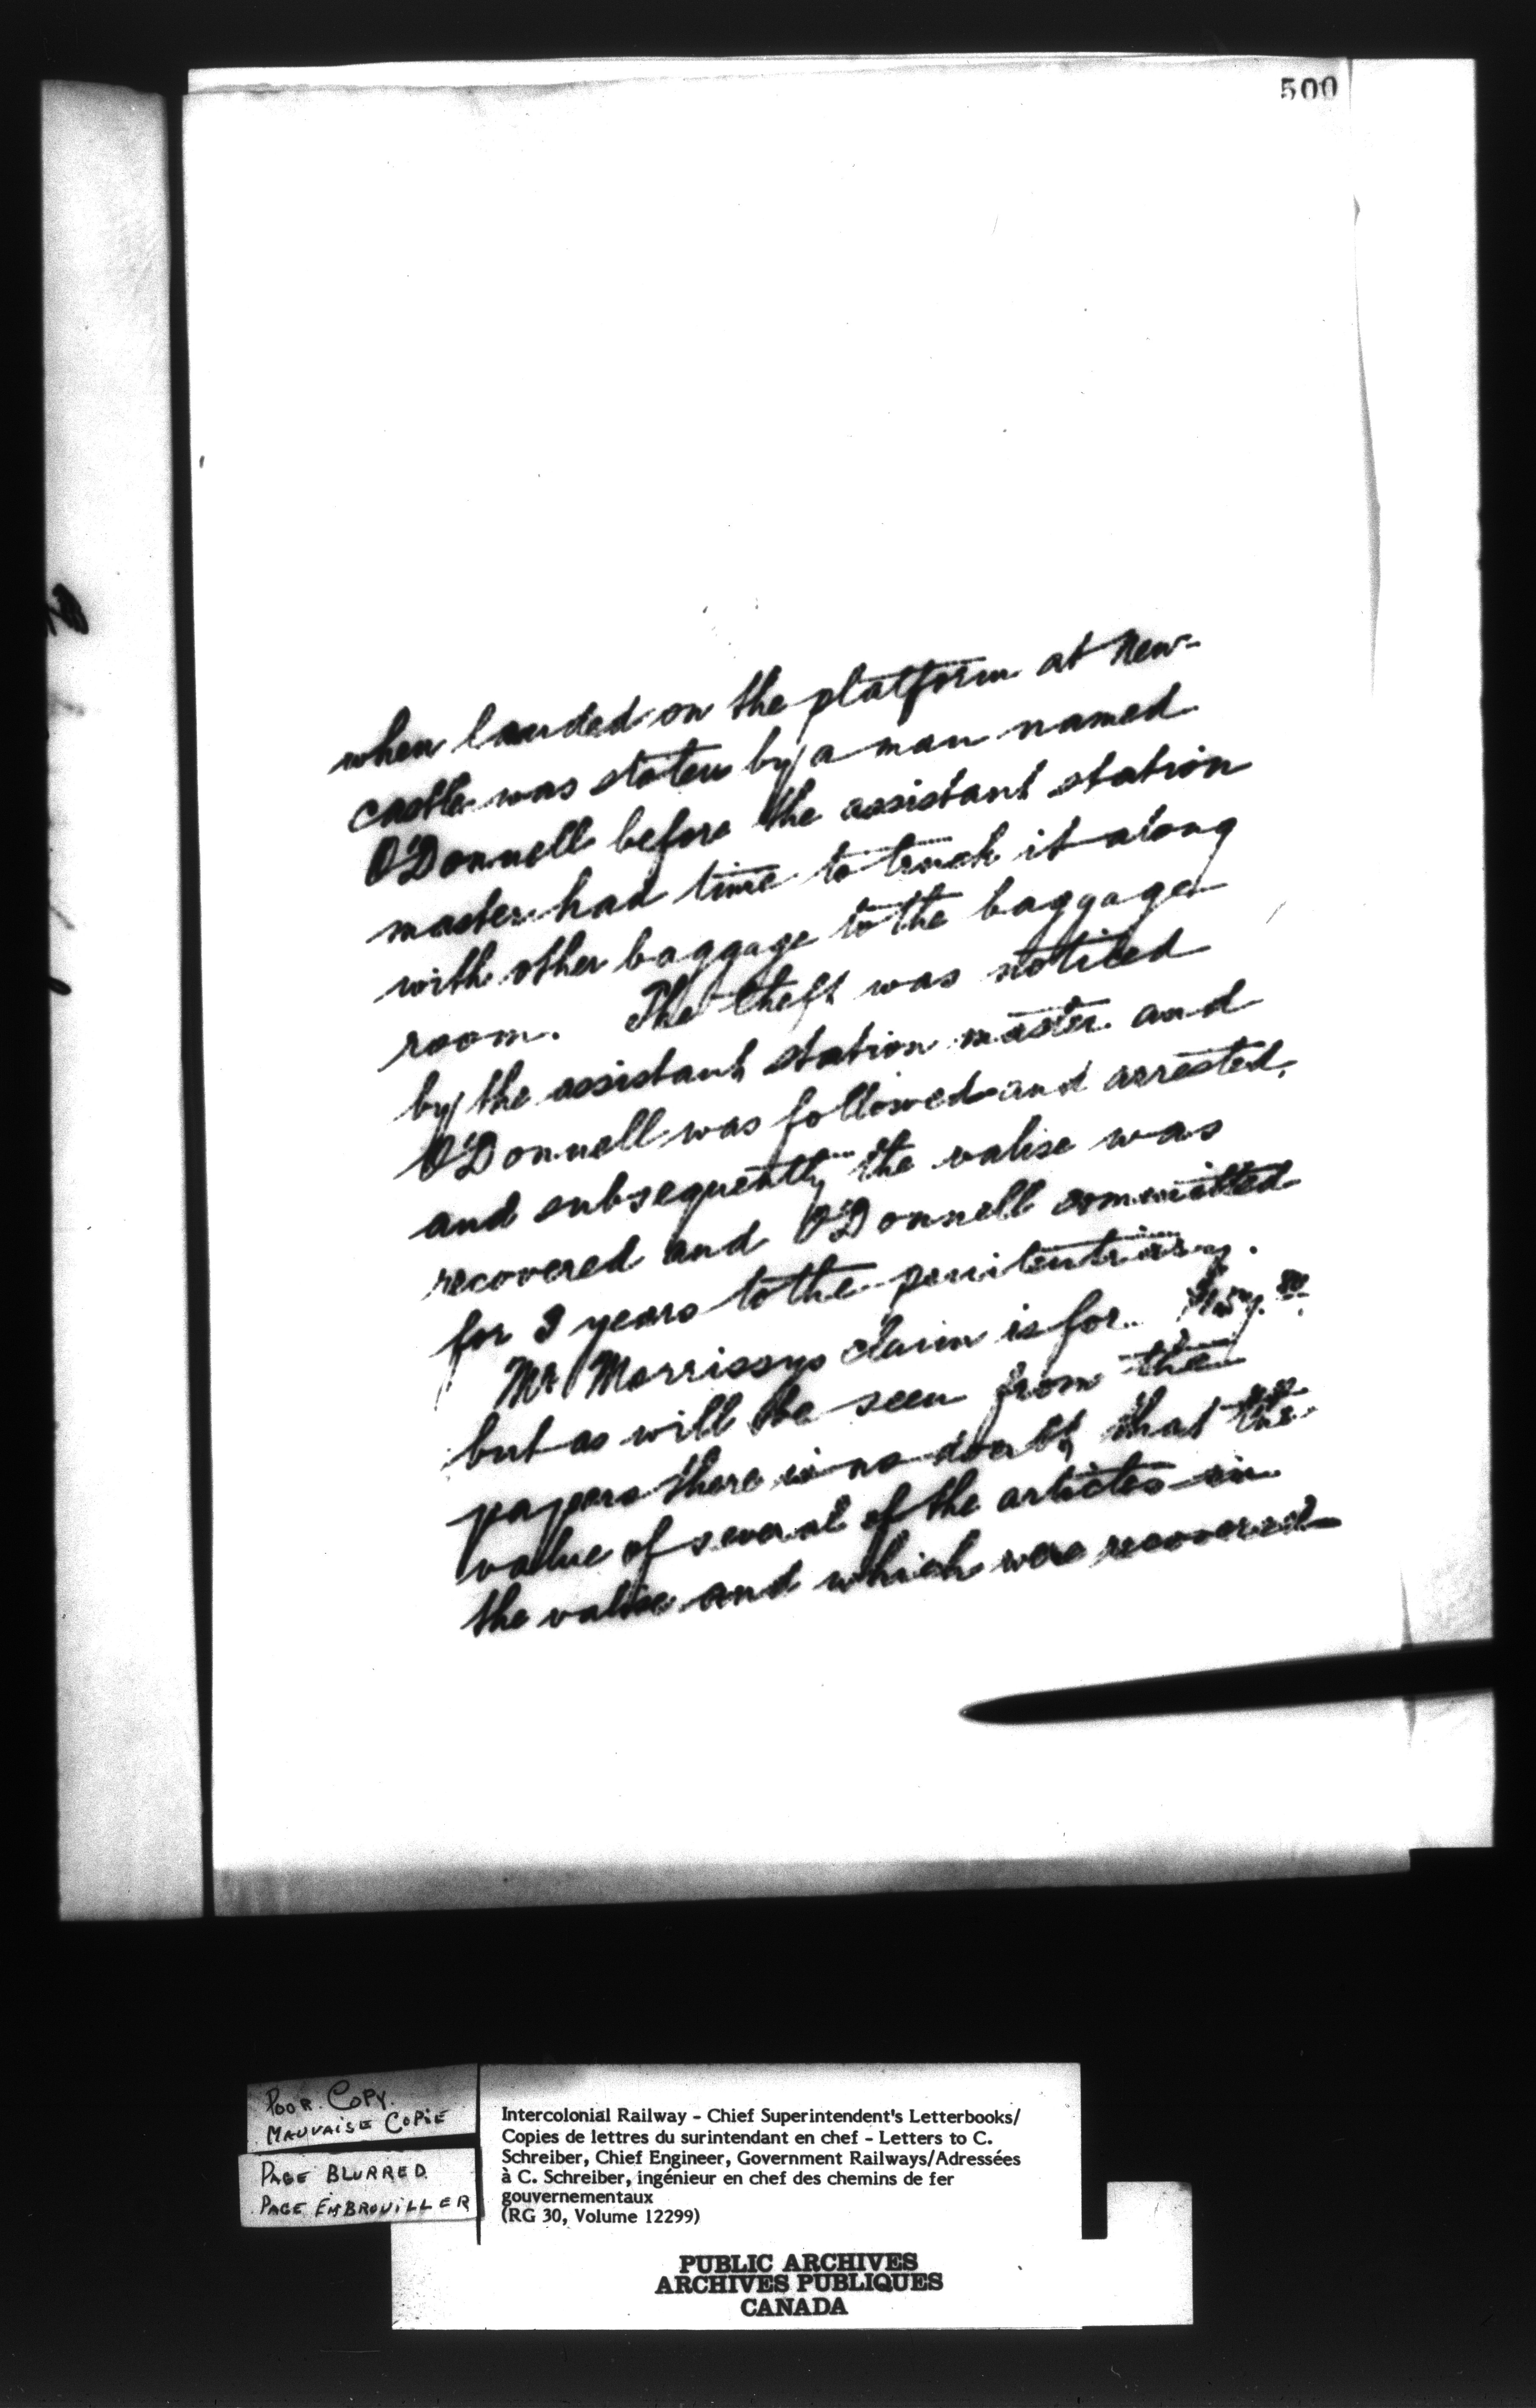 500
when landed on the platform at New-
castle was stolen by a man named
O'Donnell before the assistant station
master had time to truck it along
with other baggage to the baggage
room. The theft was noticed
by the assistant station master and
O'Donnell was followed and arrested,
and subsequently the valise was
recovered and O'Donnell committed
for 3 years to the penitentiary.
Mr Morrissys claim is for
but as will be seen from the
papers there is no doubt, that the
value of several of the articles in
the valise and which were recovered
POOR COPY.
MAUVAISE COPIE
PAGE BLURRED
PAGE EMBROUILLER
Intercolonial Railway - Chief Superintendent's Letterbooks/
Copies de lettres du surintendant en chef - Letters to C.
Schreiber, Chief Engineer, Government Railways/Adressées
à C. Schreiber, ingénieur en chef des chemins de fer
gouvernementaux
(RG 30, Volume 12299)
PUBLIC ARCHIVES
ARCHIVES PUBLIQUES
CANADA